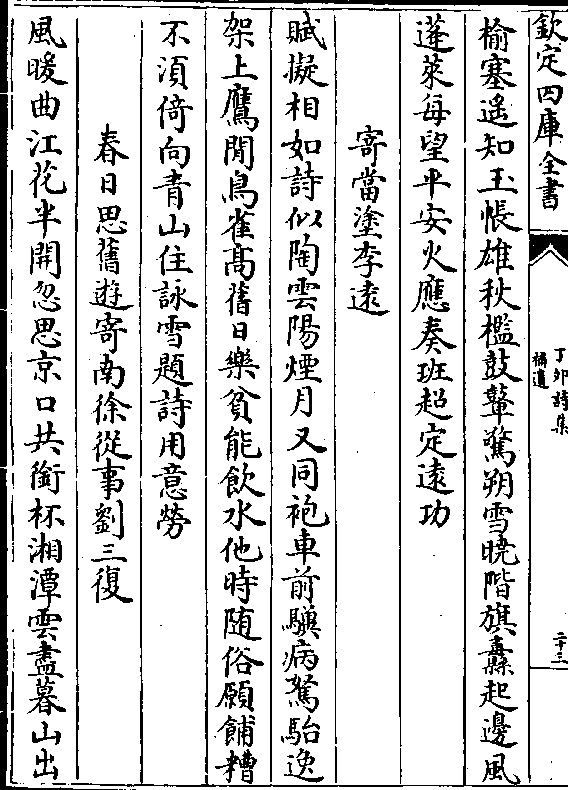 欽定四庫全書
丁卯詩集
補遺
二十三
榆塞遥知玉帳雄秋檻鼓鼙驚朔雪曉階旗纛起邊風
蓬萊每望平安火應奏班超定遠功
寄當塗李遠
賦擬相如詩似陶雲陽煙月又同袍車前驥病駑駘逸
架上鷹閒鳥雀髙舊日樂貧能飲水他時随俗願餔糟
不湏倚向青山住詠雪題詩用意勞
春日思舊遊寄南徐從事劉三復
風暖曲江花半開忽思京口共銜杯湘潭雲盡暮山出